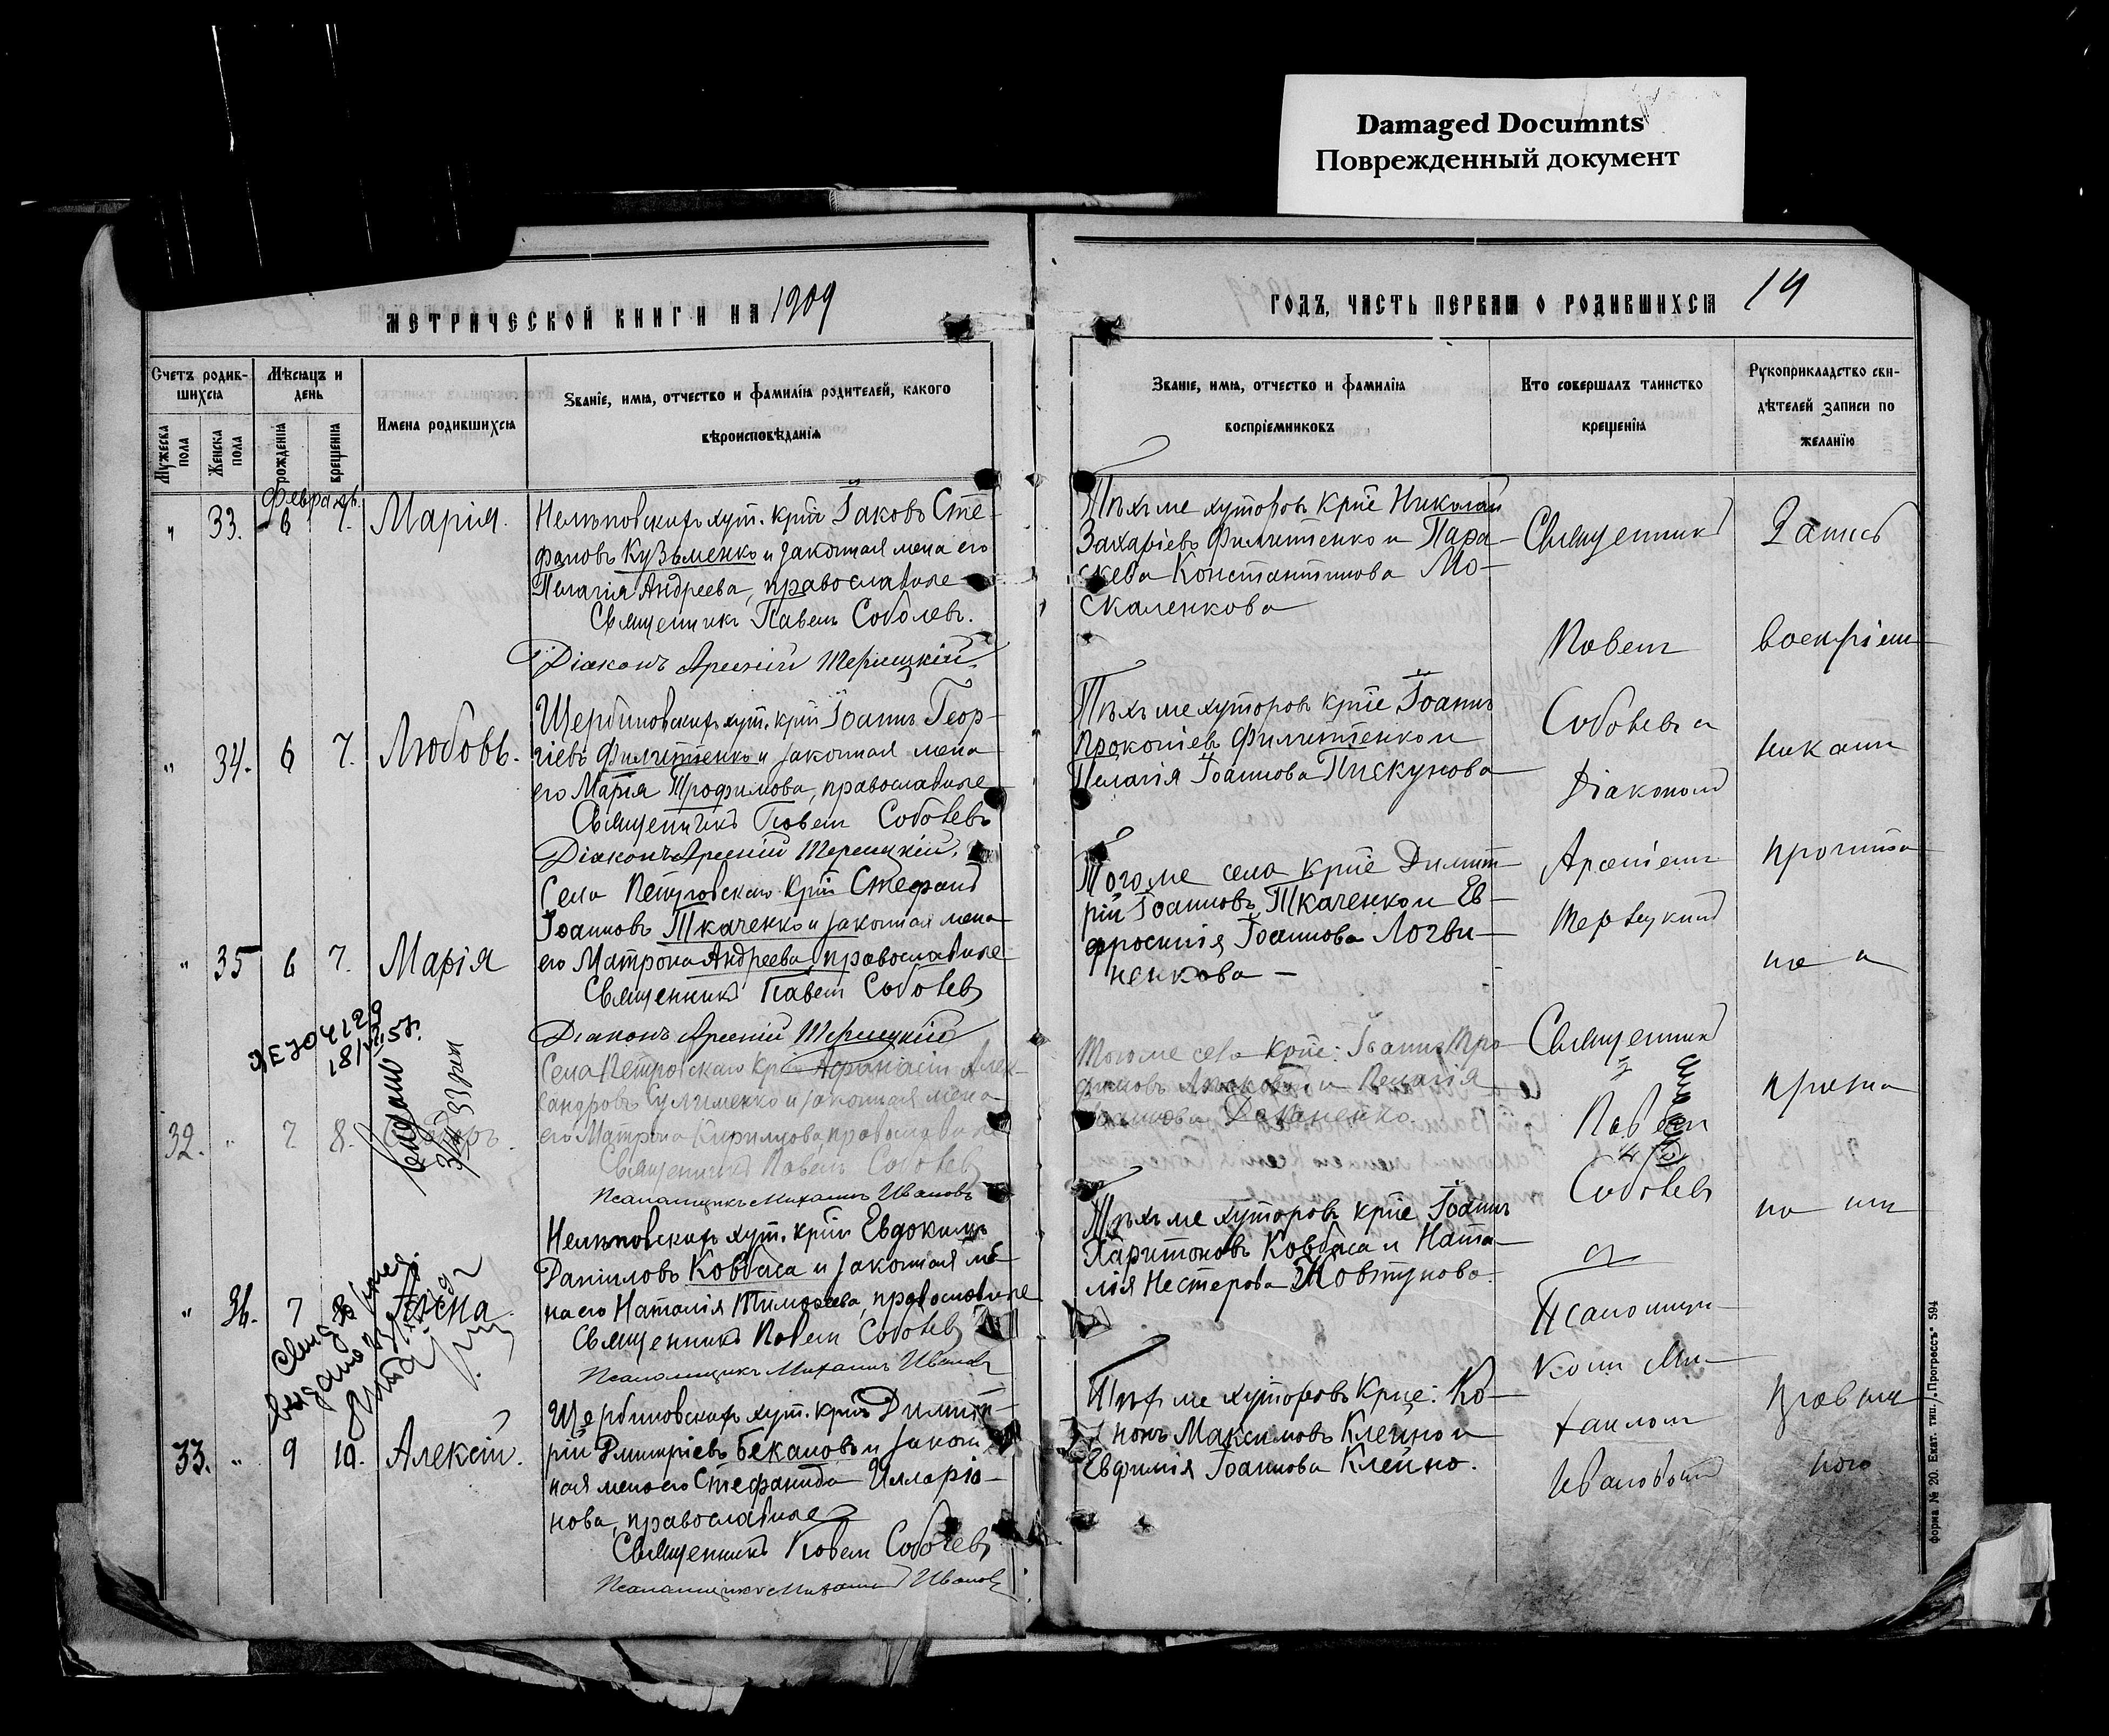 Damaged Documnts
Поврежденный документ
МЕТРИЧЕСКОЙ КНИГИ НА 1909
ГОДЪ, ЧАСТЬ ПЕРВАЯ О РОДИВШИХСЯ 14
Счетъ родив-
шихся
Мужеска
пола
Женска
пола
Мѣсяцъ и
день
рожденія
крещенія
Имена родившихся
Званіе, имя, отчество и фамилія родителей, какого
вѣроисповѣданія
Званіе, имя, отчество и фамилія
воспріемниковъ
Кто совершалъ таинство
крещенія
Рукоприкладство сви-
дѣтелей записи по
желанію
Февраль
" 33. 6 7. Марія.
хут. крін Іаковъ Сте-
фановъ Кузьменко и законная жена его
Пелагія Андреева, православные
Священникъ Павелъ Соболевъ.
Діаконъ Арсеній
Тѣхъ же хуторовъ кріе Николай
Захаріевъ Филипенко и Пара-
скева Константинова Мо-
скаленкова
" 34. 6 7. Любовь.
Щербиновскихъ хут. крін Іоаннъ Геор-
гіевъ Филипенко и законная жена
его Марія Трофимова, православные
Священникъ Павелъ Соболевъ
Діаконъ Арсеній
Тѣхъ же хуторовъ кріе Іоаннъ
Прокопіевъ Филипенко и
Пелагія Іоаннова Пискунова
" 35 6 7. Марія
Села Петровскаго крін Стефанъ
Іоанновъ Ткаченко и законная жена
его Матрона Андреева, православные
Священникъ Павелъ Соболевъ
Діаконъ Арсеній
Того же села кріе Димит-
рій Іоанновъ Ткаченко и Ев-
фросинія Іоаннова Логви-
ненкова
32. " 7 8.
18/VII 57.
Села Петровскаго Афанасій Алек-
сандровъ Сулименко и законная жена
его Матрона Кирилова, православные
Священникъ Павелъ Соболевъ
Псаломщикъ Михаилъ Ивановъ
Того же села кріе: Іоаннъ Тро-
фимовъ и Пелагія
" 36. 7 8 Анна.
хут. крін Евдокимъ
Даніиловъ Ковбаса и законная же-
на его Наталія Тимофеева, православные
Священникъ Павелъ Соболевъ
Псаломщикъ Михаилъ Ивановъ
Тѣхъ же хуторовъ кріе Іоаннъ
Харитоновъ Ковбаса и Ната-
лія Нестерова Жовтунова.
33. " 9 10. Алексій.
Щербиновскихъ хут. крін Димит-
рій Дмитріевъ Бекановъ и закон-
ная жена его Стефанида Илларіо-
нова, православные
Священникъ Павелъ Соболевъ
Псаломщикъ Михаилъ Ивановъ
Тѣхъ же хуторовъ кріе: Ко-
нонъ Максимовъ Клейно и
Евфимія Іоаннова Клейно.
Священникъ
Павелъ
Соболевъ и
Діаконом
Арсеніем
Священник
Павел
Соболевъ
и
Псаломщи-
ком Ми-
хаилом
Ивановым
Запись
форма № 20. Екат. тип. „Прогрессъ" 594